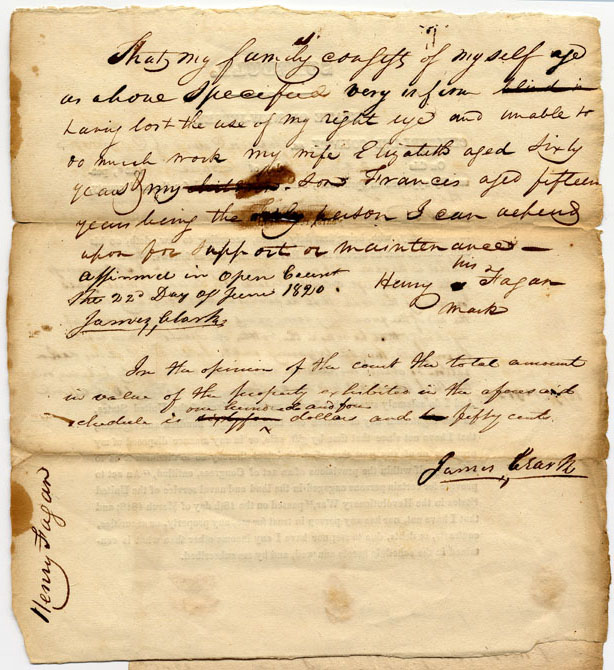 That my family consists of myself age
as above Specefied very infirm blind in
having lost the use of my right eye and unable to
do much work my wife Elizabeth aged Sixty
years & my Son Frances aged fifteen
years being the only person I can depend
upon for Support or maintenance —
Affirmed in Open Court
the 22d Day of June 1820.
James Clark
Henry his Fagan
mark
In the opinion of the court the total amount
in value of the property exhibited in the aforesaid
one hundred and four
schedule is sixtyfour dollars and fifty cents.
James Clark
Henry Fagan